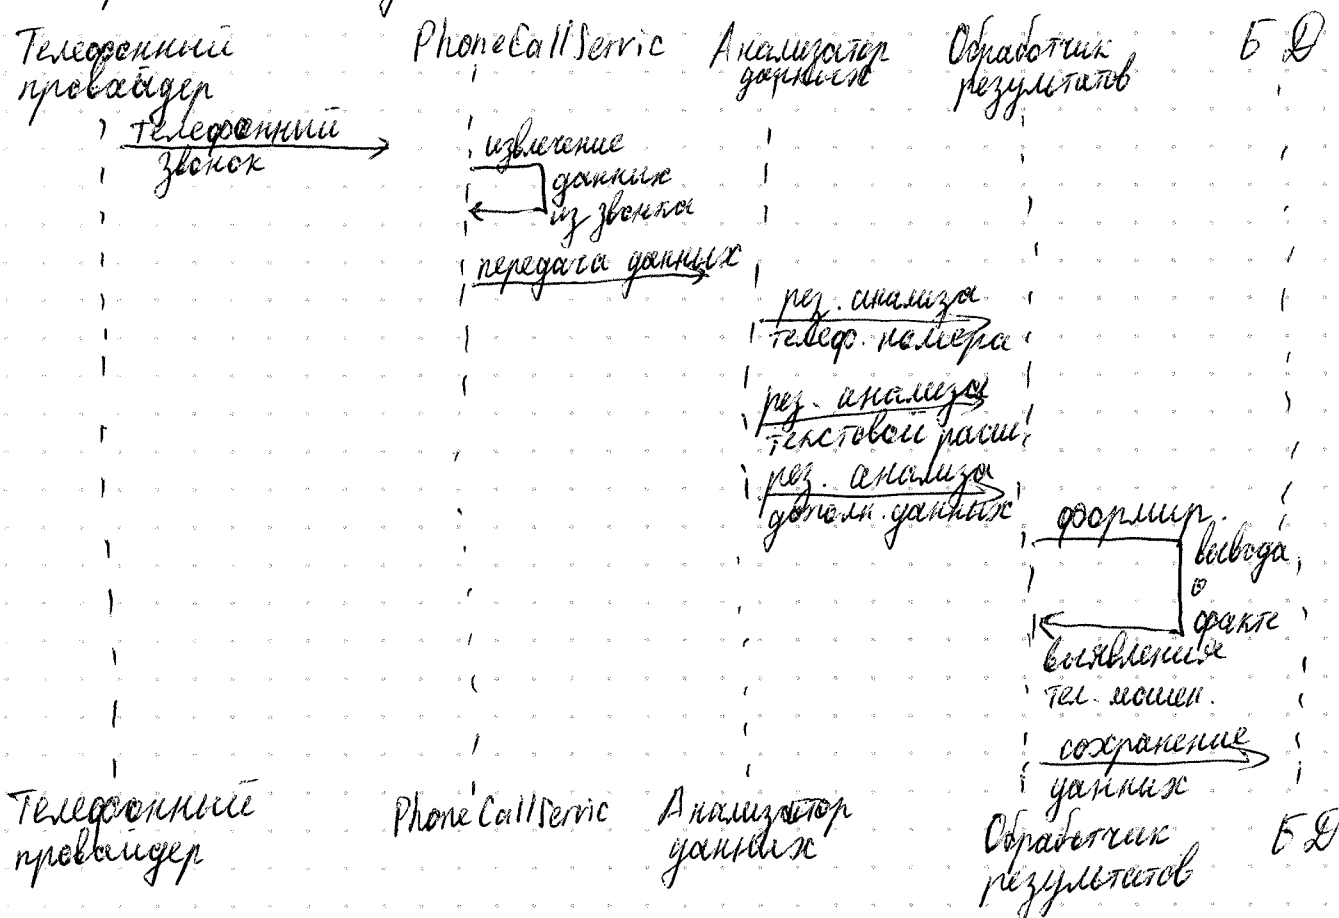 Телефонный
провайдер
PhoneCallServic
Анализатор
данных
Обработчик
результатов
БД
телефонный
звонок
извлечение
данных
из звонка
передача данных
рез. анализа
телеф. номера
рез. анализа
текстовой расш.
рез. анализа
дополн. данных
формир.
вывода
о
факте
выявления
тел. мошен.
сохранение
данных
Телефонный
провайдер
PhoneCallServic
Анализатор
данных
Обработчик
результатов
БД